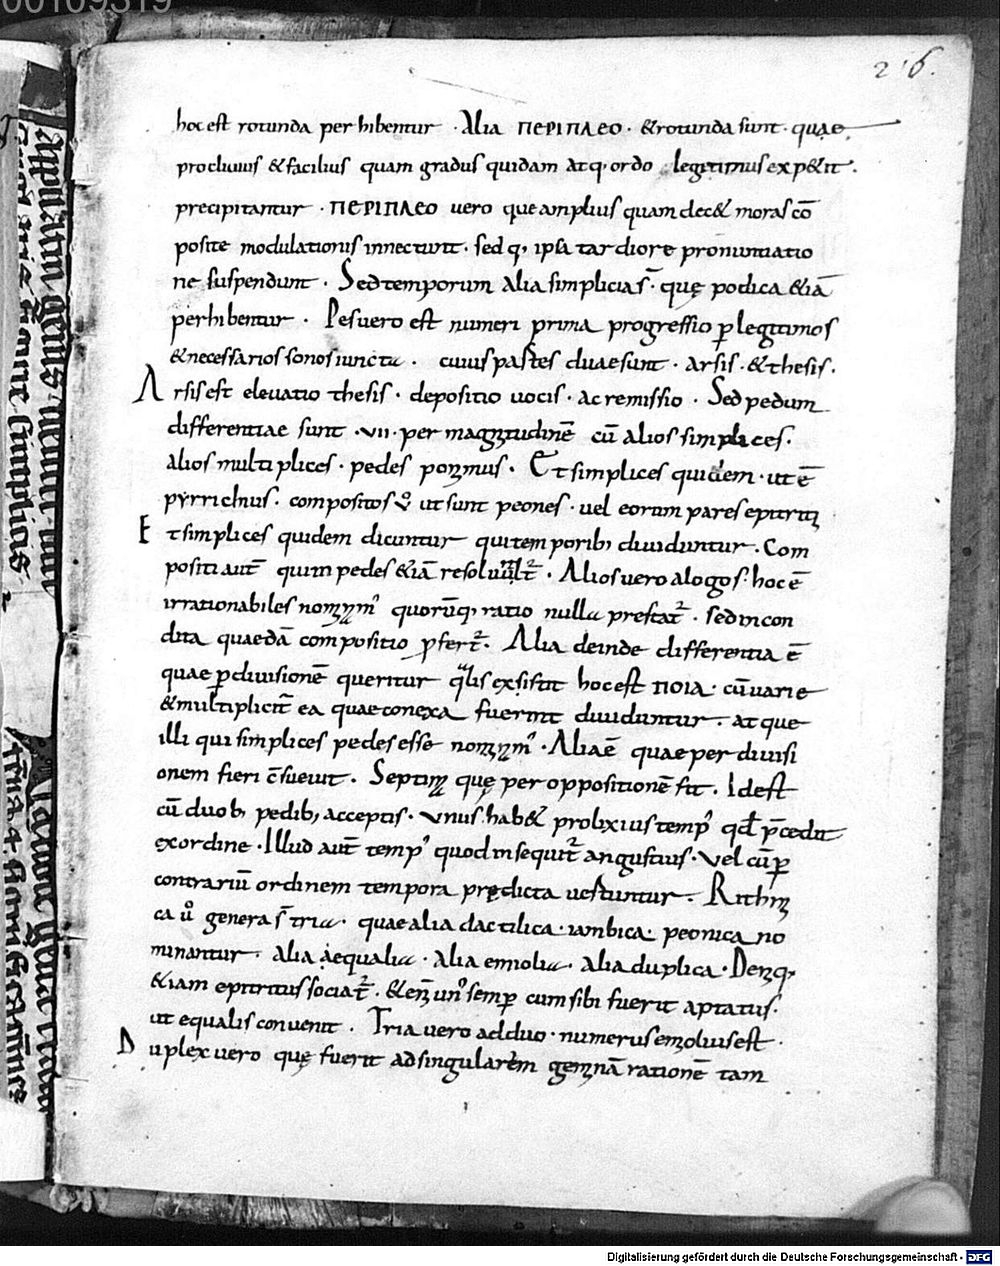 00109319
216.
hoc est rotunda perhibentur · Alia ΠΕΡΙΠΛΕΟ · &rotunda sunt · quae
procliuius &facilius quam gradus quidam atq· ordo legitimus exp&it ·
precipitantur · ΠΕΡΙΠΛΕΟ uero que amplius quam dec& moras cō
posite modulationis innectunt · sed q, ipsa tardiore pronuntiatio
ne suspendunt · Sed temporum alia simplicia s̄ · quę podica &iā
perhibentur · Pes uero est numeri prima progressio p legitimos
&necessarios sonos iuncta · cuius partes duae sunt · arsis · &thesis ·
Arsis est eleuatio thesis · depositio uocis · ac remissio · Sed pedum
differentiae sunt · vii · per magnitudinē cū alios simplices ·
alios multiplices · pedes ponimus · Et simplices quidem · ut ē
pyrrichius · compositos ů ut sunt peones · uel eorum pares epitriti
Et simplices quidem dicuntur qui temporib; diuiduntur · Com
positi aut̄ qui in pedes &iā resoluunt² · Alios uero alogos · hoc ē
irrationabiles nominam' quorūq, ratio nulla prestat² · sed incon
dita quaedā compositio pfert² · Alia deinde differentia ē
quae p diuisionē queritur qlis exsistit hoc est ΠΟΙΑ · cū uarie
&multiplicit̄ ea quae conexa fuerint diuiduntur · atque
illi qui simplices pedes esse nominam' · Alia ē quae per diuisi
onem fieri c̄sueuit · Septima quę per oppositionē fit · Id est
cū duob; pedib; acceptis · vnus hab& prolixius temp' qd p̄cedit
ex ordine · Illud aut̄ temp' quod insequit² angustius · Vel cū p
contrariū ordinem tempora prędicta uestiuntur · Rithmi
ca ů genera s̄ tria · quae alia dactilica · iambica · peonica no
minantur · alia aequalia · alia emiolia · alia duplica · Deniq,
&iam epitritus sociat² · &enī un' semp cum sibi fuerit aptatus ·
ut equalis conuenit · Tria uero ad duo · numerus emioliuis est ·
Duplex uero quę fuerit ad singularem geminā rationē tam
Digitalisierung gefördert durch die Deutsche Forschungsgemeinschaft - DFG